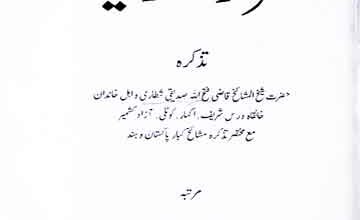 تذکرہ
حضرت شیخ المشائخ قاضی فتح اللہ صدیقی شطاری و اہل خاندان
خانقاہ درس شریف، اگہار، کوٹلی، آزاد کشمیر
مع مختصر تذکرہ مشائخ کبار پاکستان و ہند
مرتبہ